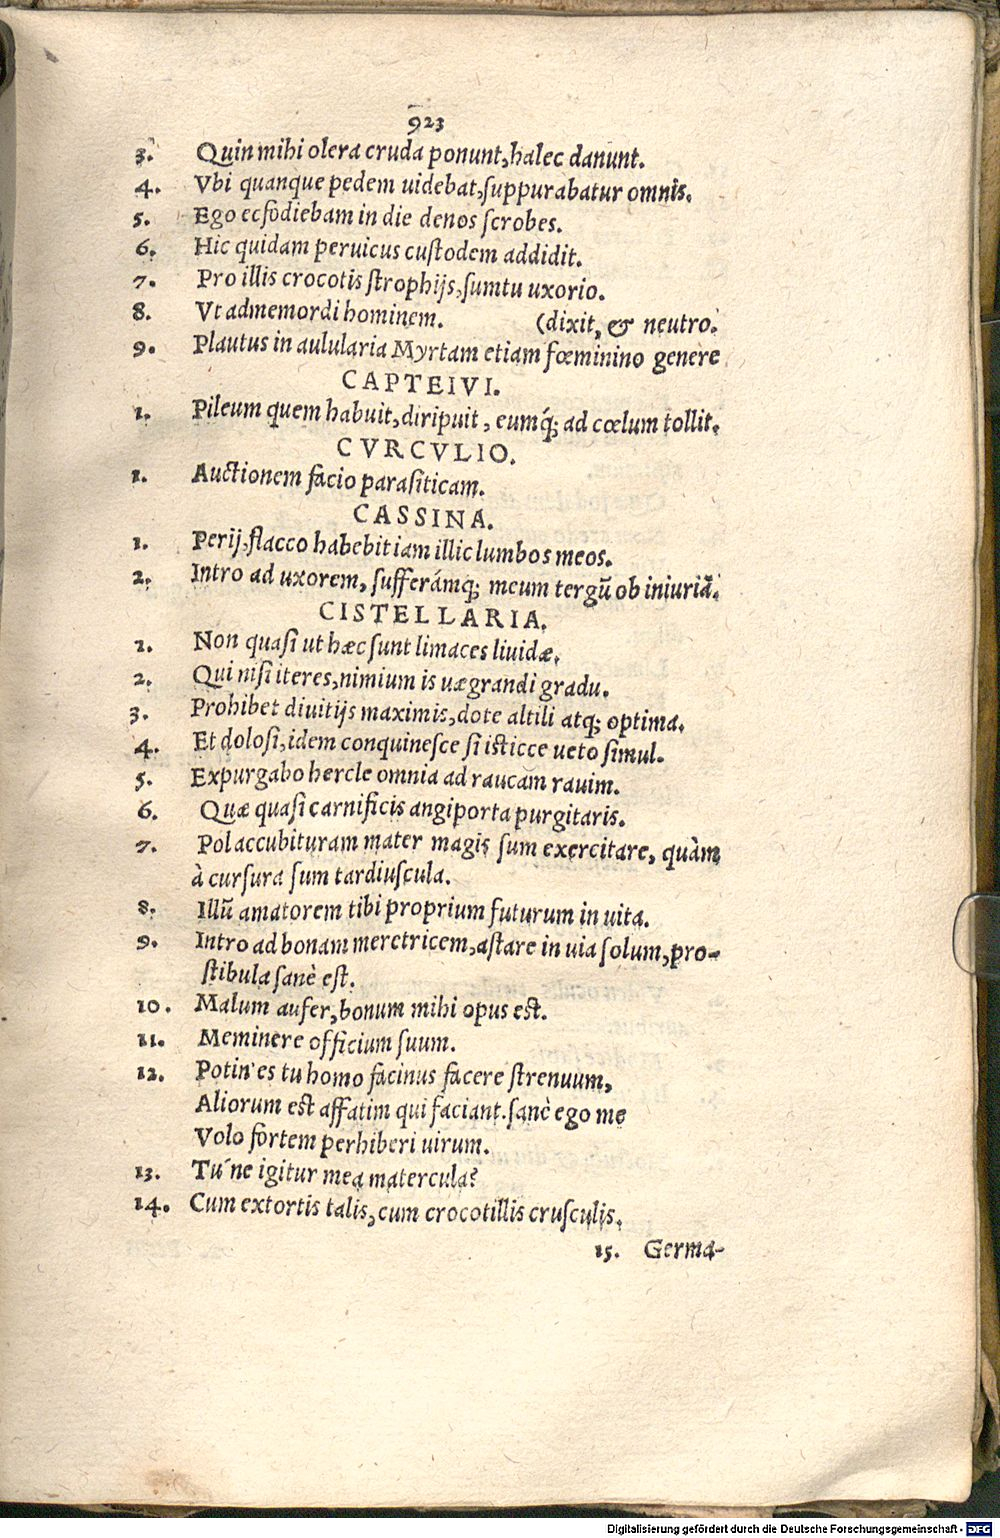 923
3. Quin mihi olera cruda ponunt, halec danunt.
4. Vbi quanque pedem uidebat, suppurabatur omnis.
5. Ego ecfodiebam in die denos scrobes.
6. Hic quidam peruicus custodem addidit.
7. Pro illis crocotis strophijs, sumtu uxorio.
8. Vt admemordi hominem. (dixit, & neutro.
9. Plautus in aulularia Myrtam etiam fœminino genere
CAPTEIVI.
1. Pileum quem habuit, diripuit, eumq́; ad cœlum tollit.
CVRCVLIO.
1. Auctionem facio parasiticam.
CASSINA.
1. Perij, flacco habebit iam illic lumbos meos.
2. Intro ad uxorem, sufferámq; meum tergũ ob iniuriã.
CISTELLARIA.
1. Non quasi ut hæc sunt limaces liuidæ.
2. Qui nisi iteres, nimium is uægrandi gradu.
3. Prohibet diuitijs maximis, dote altili atq; optima.
4. Et dolosi, idem conquinesce si isticce ueto simul.
5. Expurgabo hercle omnia ad raucam rauim.
6. Quæ quasi carnificis angiporta purgitaris.
7. Pol accubituram mater magis sum exercitare, quàm
à cursura sum tardiuscula.
8. Illũ amatorem tibi proprium futurum in uita.
9. Intro ad bonam meretricem, astare in uia solum, pro-
stibula sanè est.
10. Malum aufer, bonum mihi opus est.
11. Meminere officium suum.
12. Potin' es tu homo facinus facere strenuum,
Aliorum est affatim qui faciant. sanè ego me
Volo fortem perhiberi uirum.
13. Tu'ne igitur mea matercula?
14. Cum extortis talis, cum crocotillis crusculis.
15. Germa-
Digitalisierung gefördert durch die Deutsche Forschungsgemeinschaft - DFG